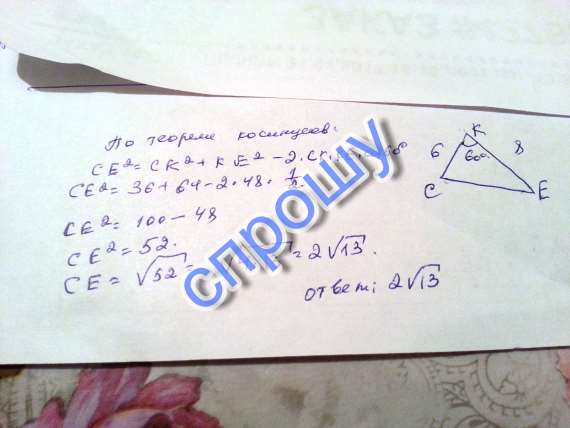 По теореме косинусов:
CE² = CK² + KE² - 2 · CK
CE² = 36 + 64 - 2 · 48 · 1/2
CE² = 100 - 48
CE² = 52.
CE = √52 = = 2√13.
ответ: 2√13
K
6
60°
8
C
E
спрошу